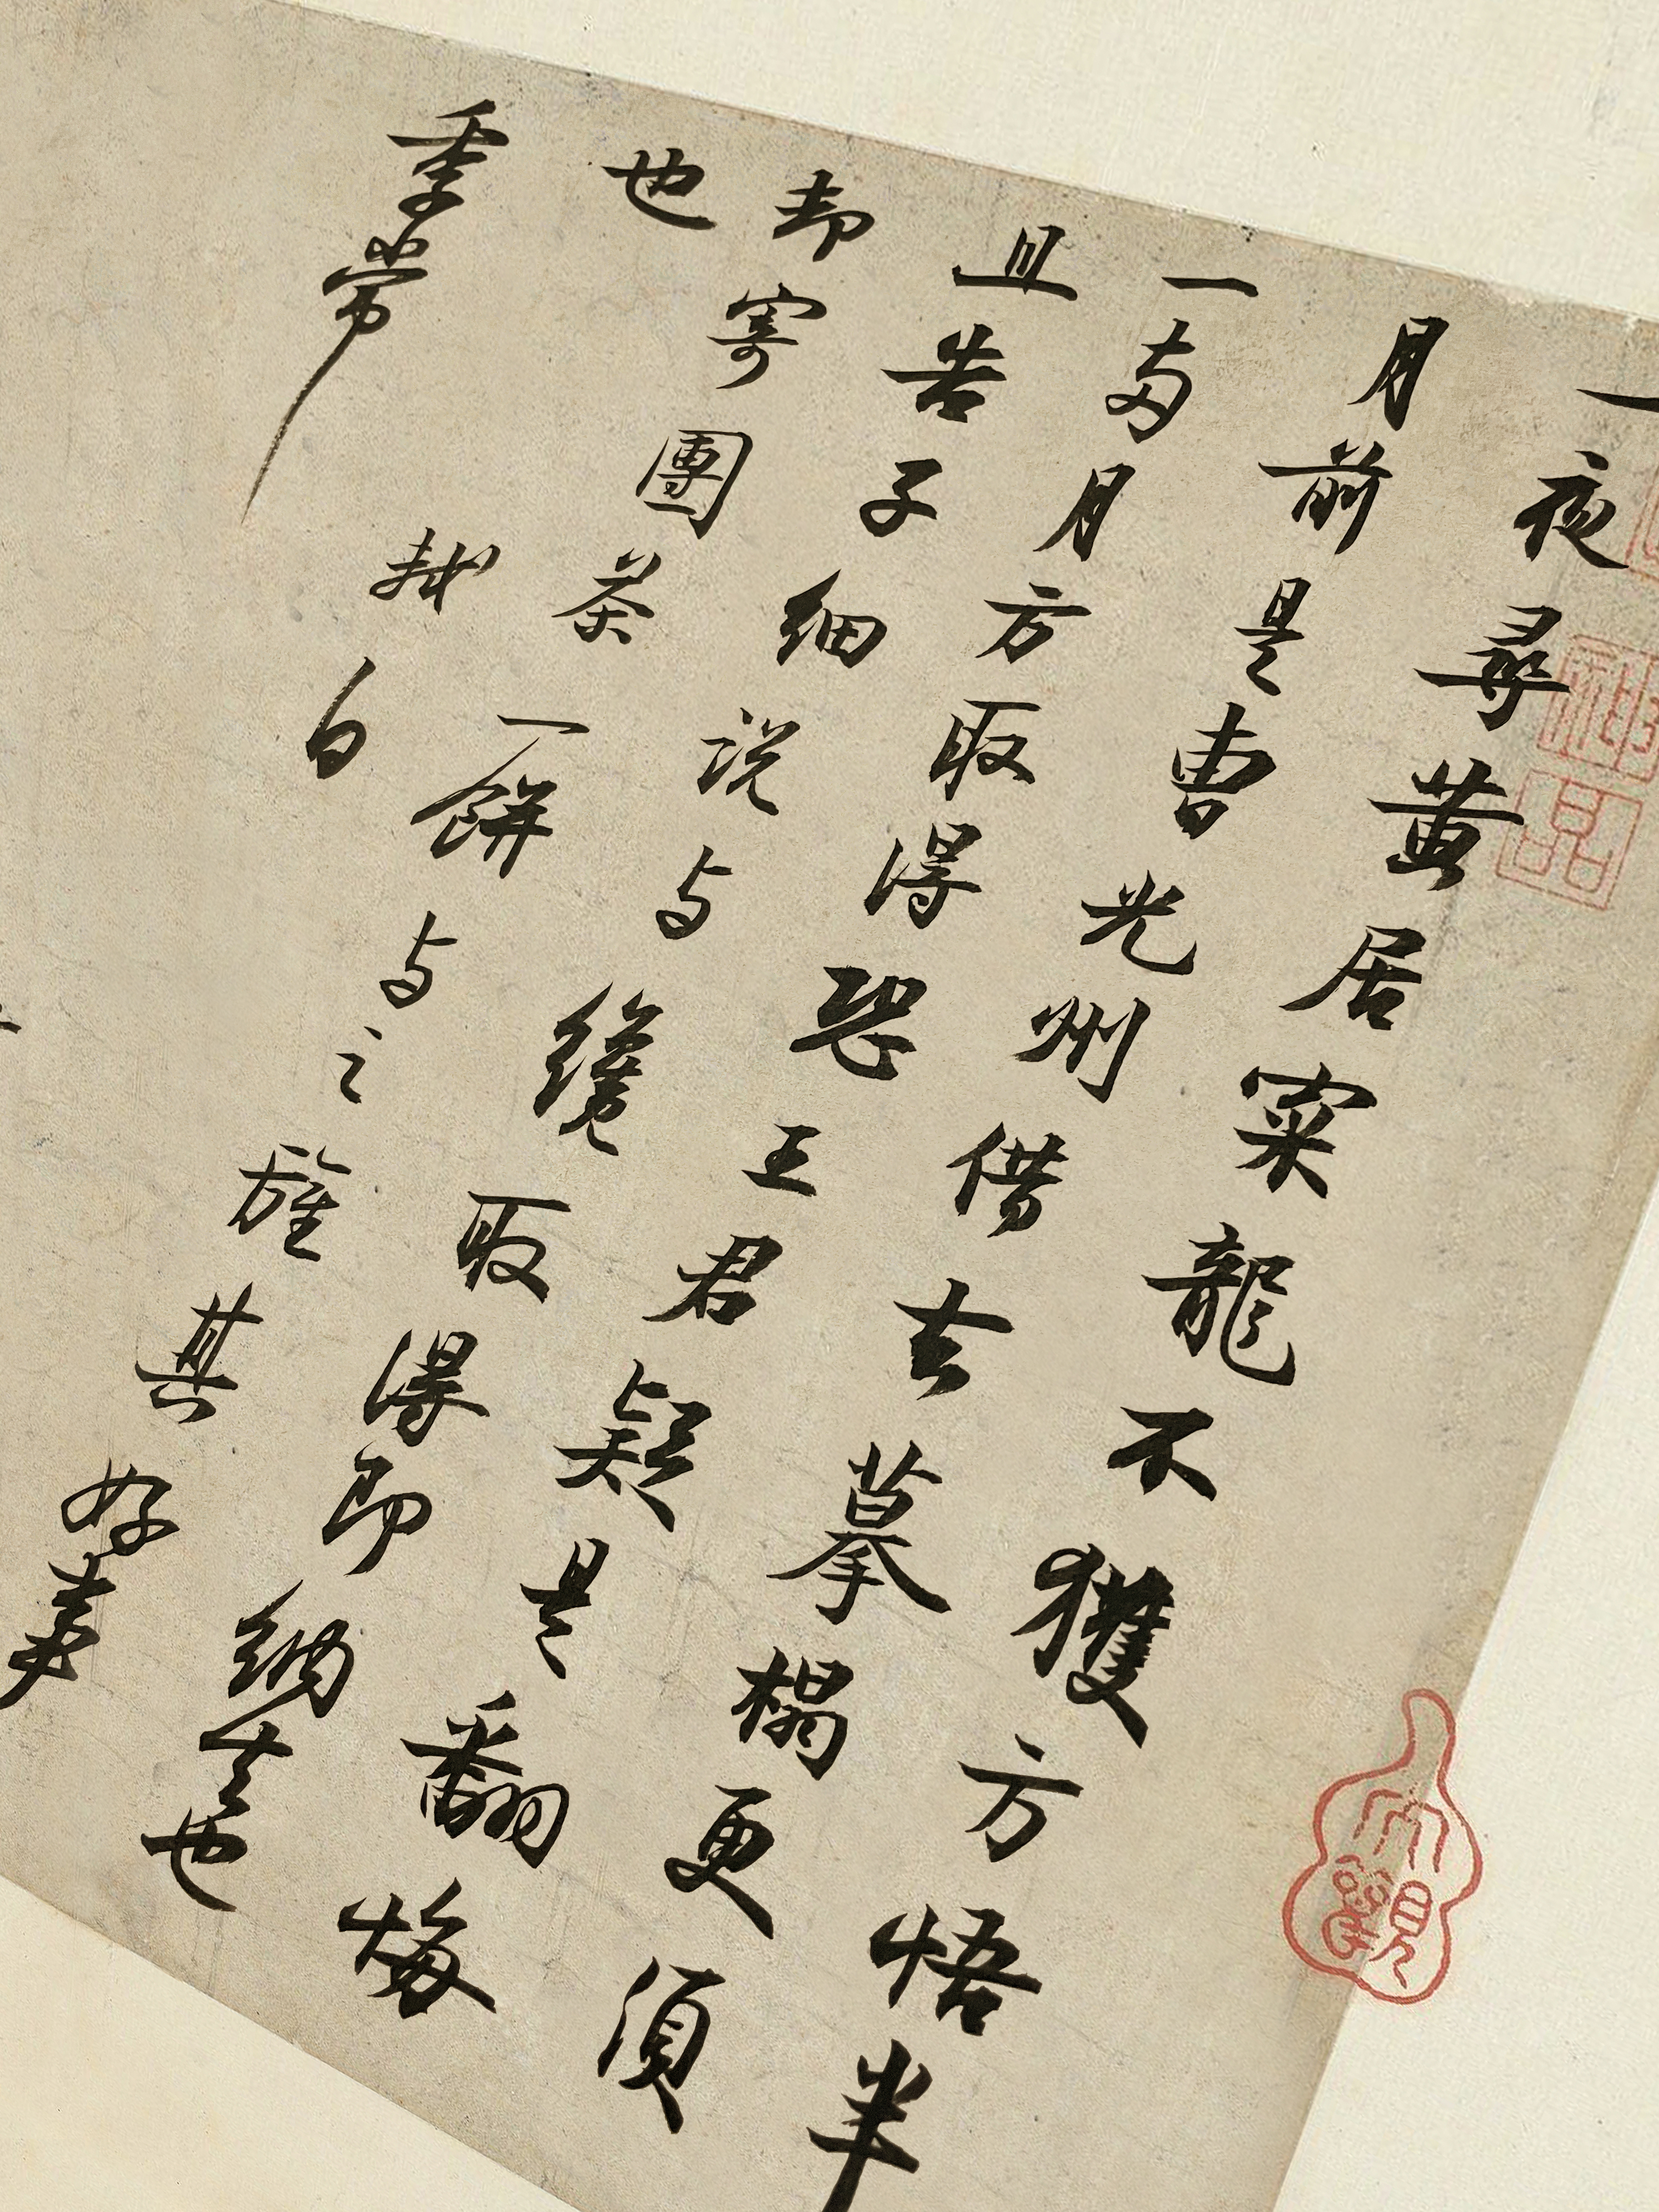 一夜尋黃居寀龍不獲方悟半
月前是曹光州借去摹搨更須
一兩月方取得恐王君疑是翻悔
且告子細說与纔取得即納去也
却寄團茶一餅与之旌其好事
也 軾白
季常
神品
大觀